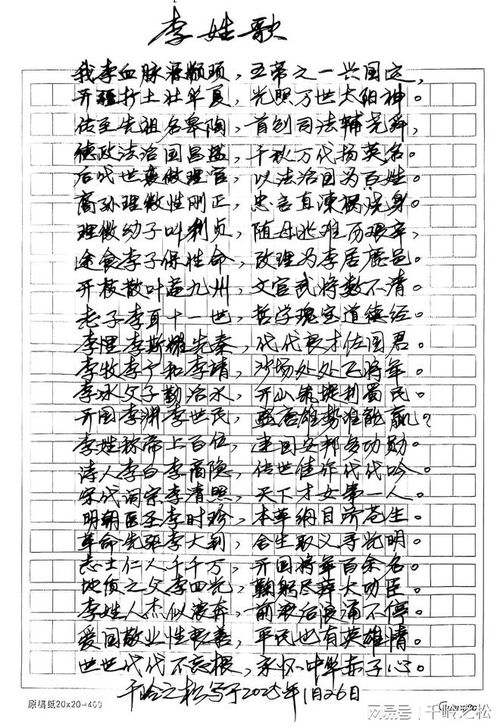 李姓歌
我李血脉源颛顼，五帝之一兴国运，
开疆扩土壮华夏，光照万世太阳神。
佑至先祖名皋陶，首创司法辅尧舜，
德政法治国昌盛，千秋万代扬英名。
后代世袭做理官，以法治国为百姓。
裔孙理徵性刚正，忠言直谏祸烧身。
理徵幼子叫利贞，随母逃难历艰辛，
途食李子保性命，改理为李居鹿邑。
开枝散叶遍九州，文官武将数不清。
老子李耳十一世，哲学瑰宝道德经。
李悝李斯耀先秦，代代良才佐国君。
李牧李广和李靖，沙场处处飞将军。
李冰父子勤治水，开山凿堤利蜀民。
开国李渊李世民，强唐雄势谁能赢？
李姓称帝上百位，建国安邦多功勋。
诗人李白李商隐，传世佳作代代吟。
宋代词宗李清照，天下才女第一人。
明朝医圣李时珍，本草纲目济苍生。
革命先驱李大钊，舍生取义寻光明。
志士仁人千千万，开国将军百余名。
地质之父李四光，鞠躬尽瘁大功臣。
李姓人杰似浪奔，前浪后浪涌不停。
爱国敬业性良善，平民也有英雄情。
世世代代不忘根，永怀中华赤子心。
千岭之松写于2025年1月26日
原稿纸20x20=400
知乎 @千岭之松